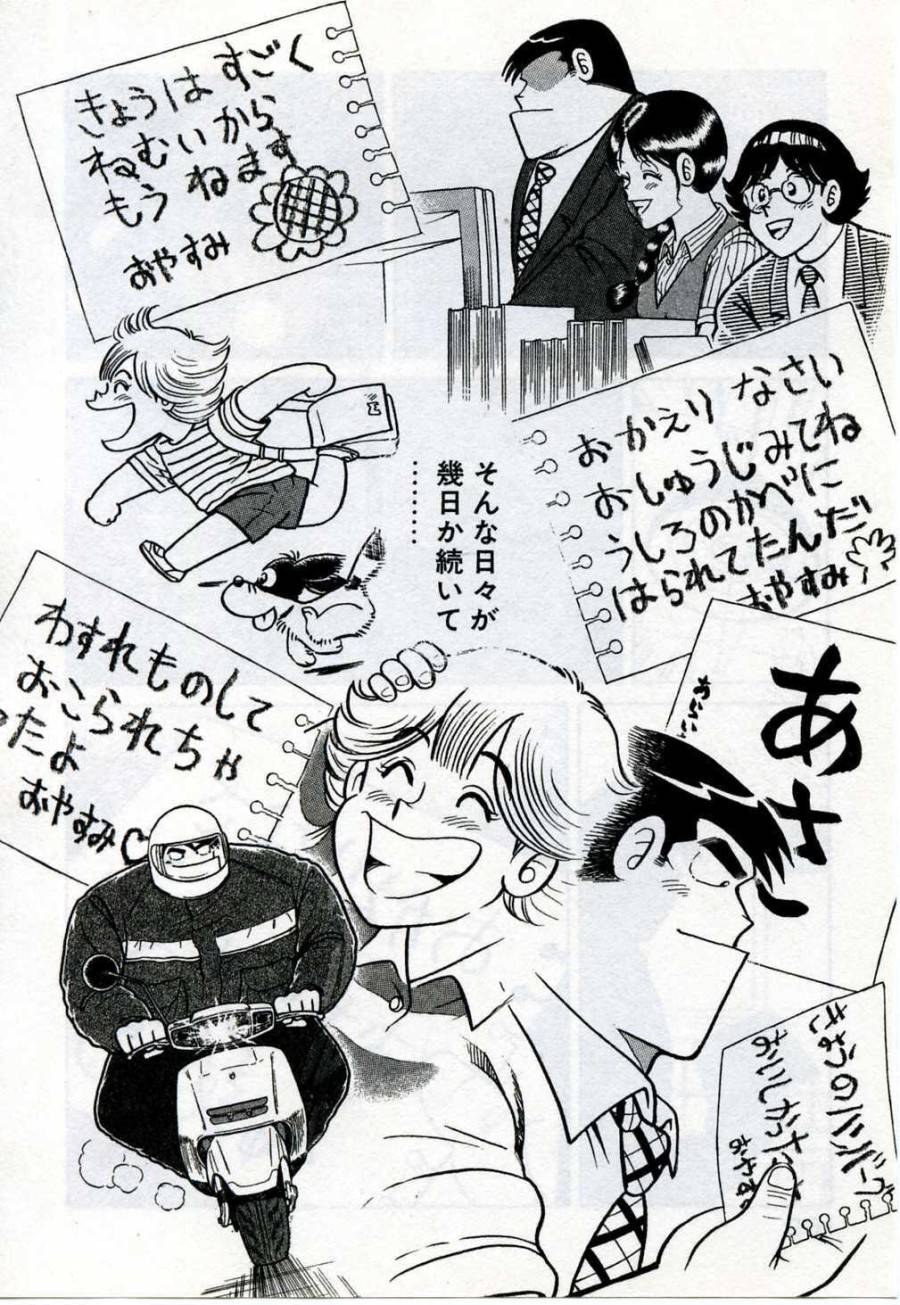 きょうは すごく
ねむいから
もう ねます
おやすみ
おかえり なさい
おしゅうじみてね
うしろのかべに
はられてたんだ
おやすみ
そんな日々が
幾日か続いて
………
わすれものして
おこられちゃ
ったよ
おやすみ
あさ
きょうのハンバーグ
おいしかった
おやすみ